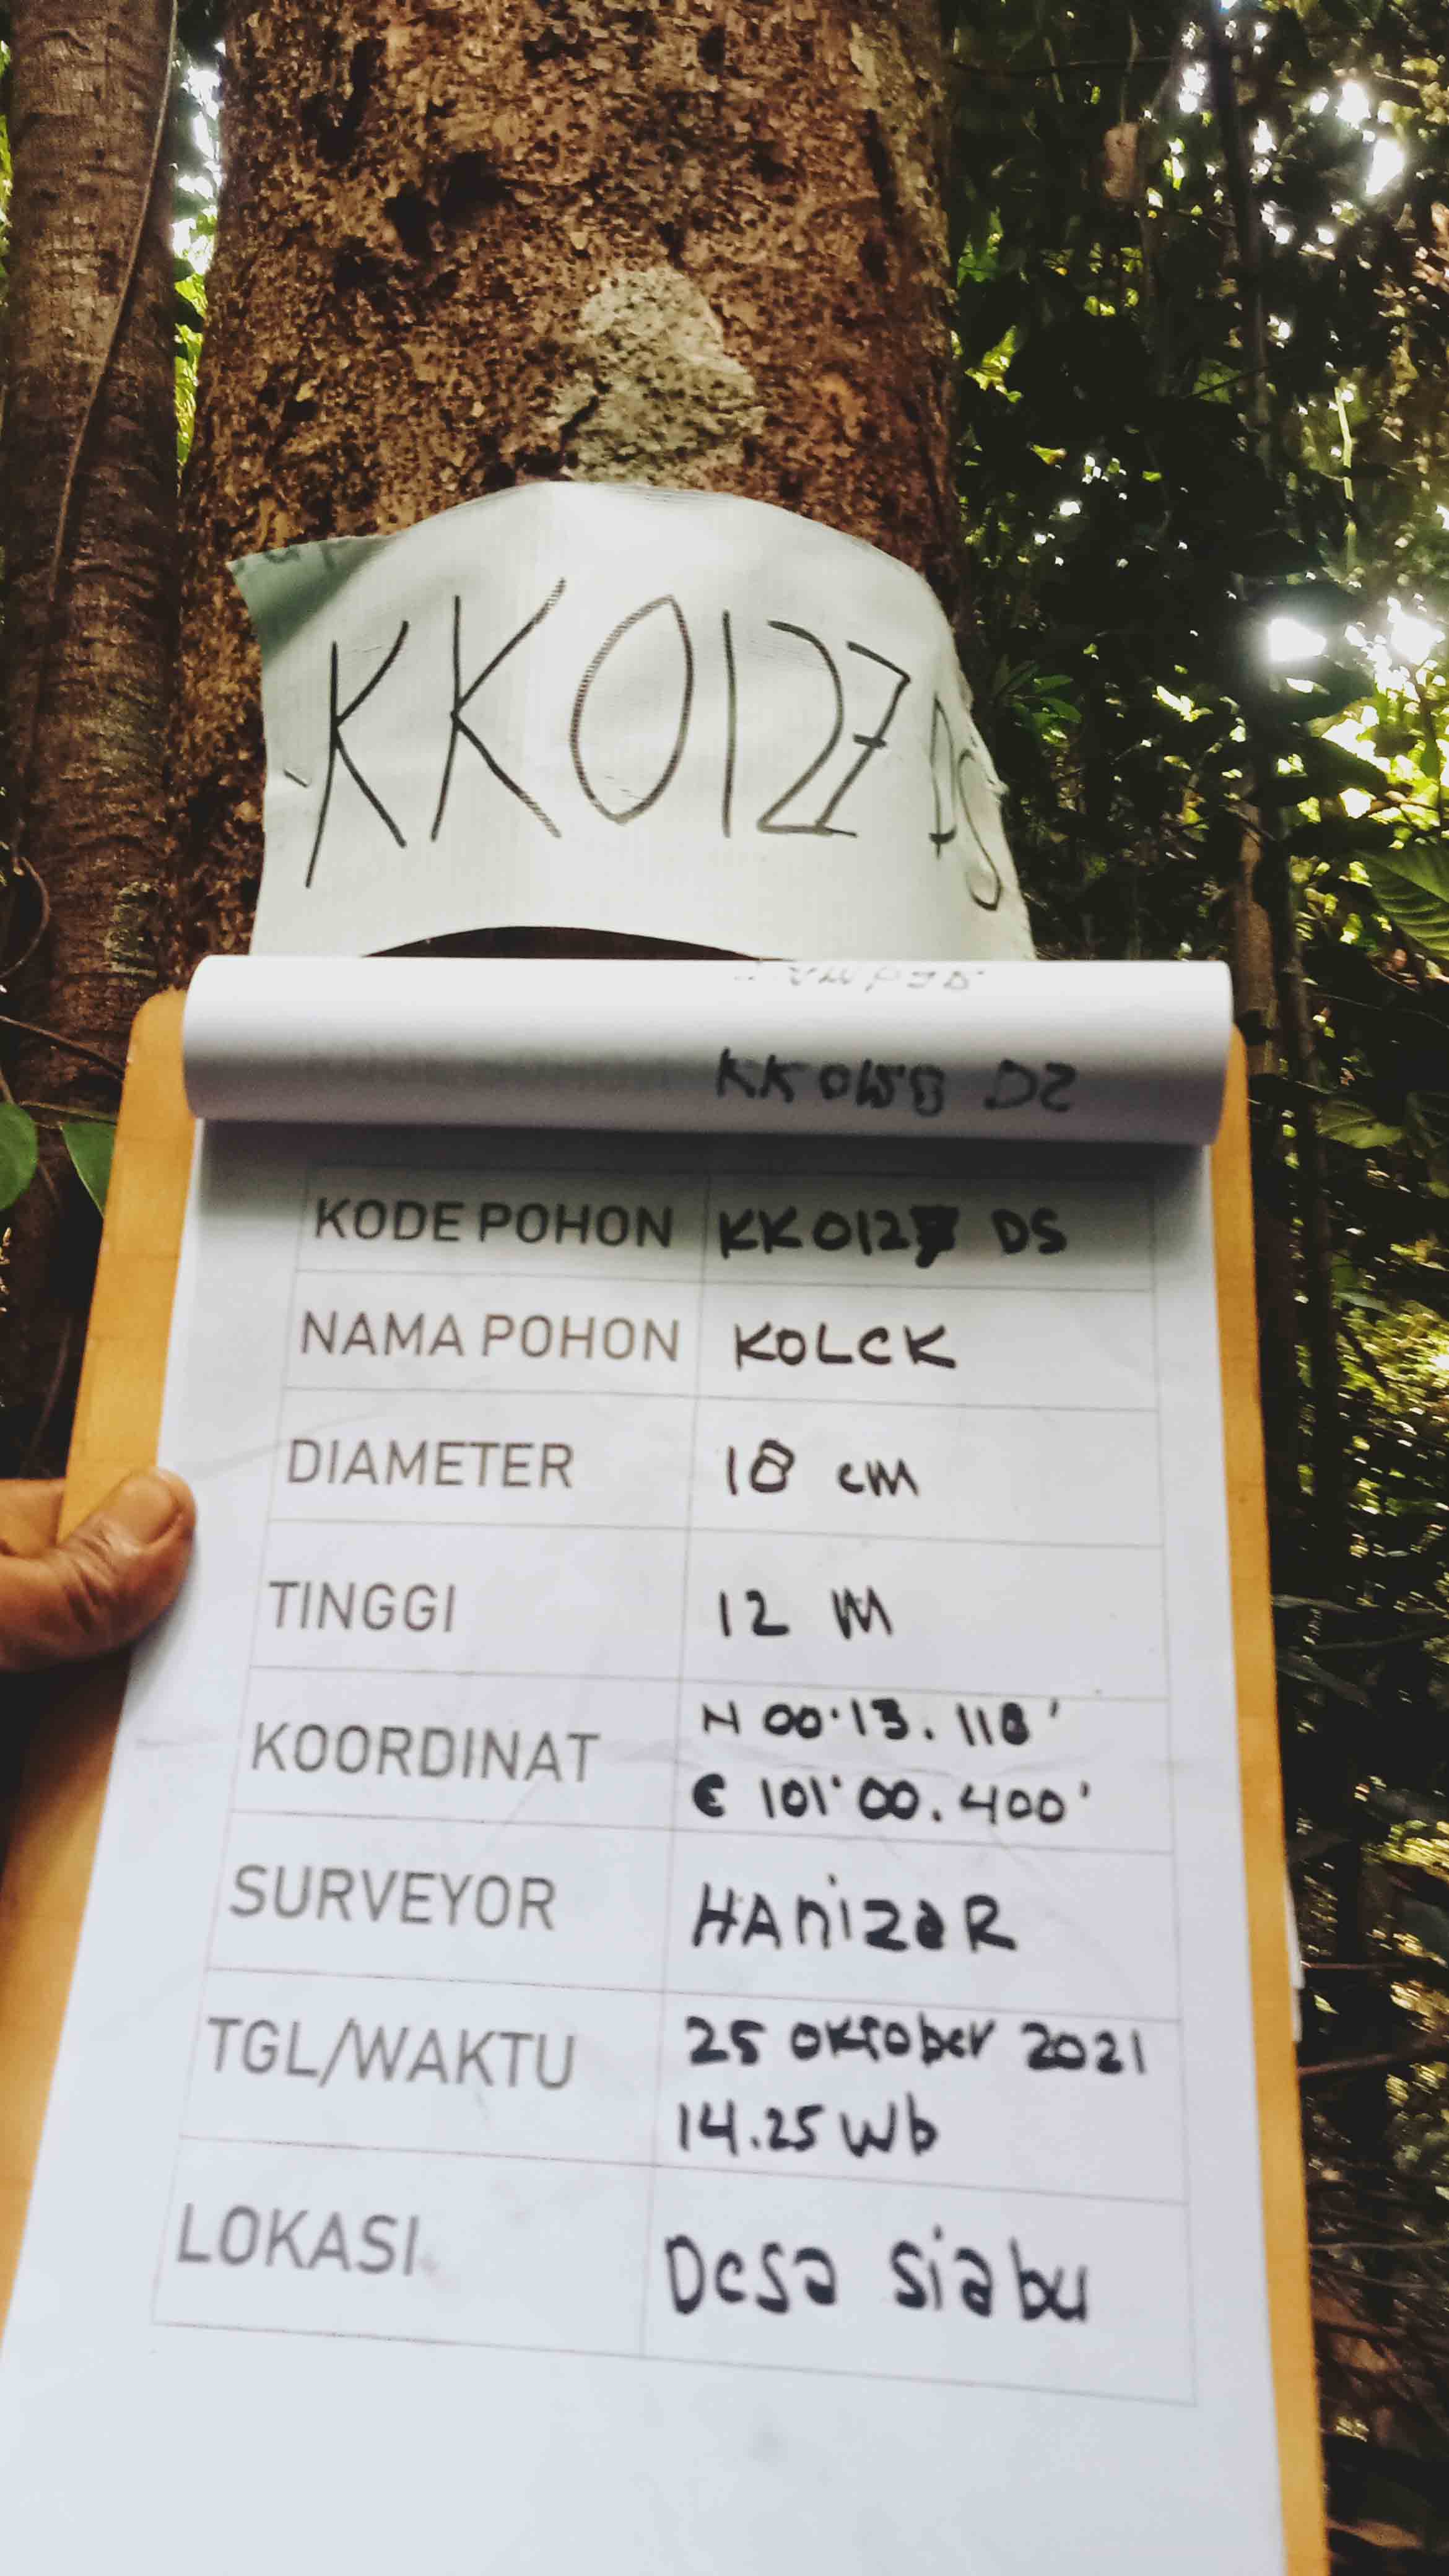 KK0127 DS
KODE POHON KK0127 DS
NAMA POHON KOLCK
DIAMETER 18 cm
TINGGI 12 M
KOORDINAT N 00°13.118'
E 101°00.400'
SURVEYOR HAnizaR
TGL/WAKTU 25 oktober 2021
14.25 Wb
LOKASI Desa siabu